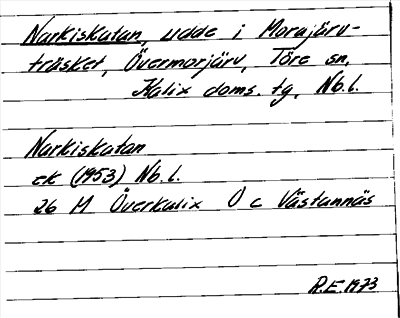 Narkiskatan, udde i Morajärv-
träsket, Övermorjärv, Töre sn,
Kalix doms. tg, Nb. l.
Narkiskatan
ek (1953) Nb. l.
26 M Överkalix O c Västannäs
R.E. 1973